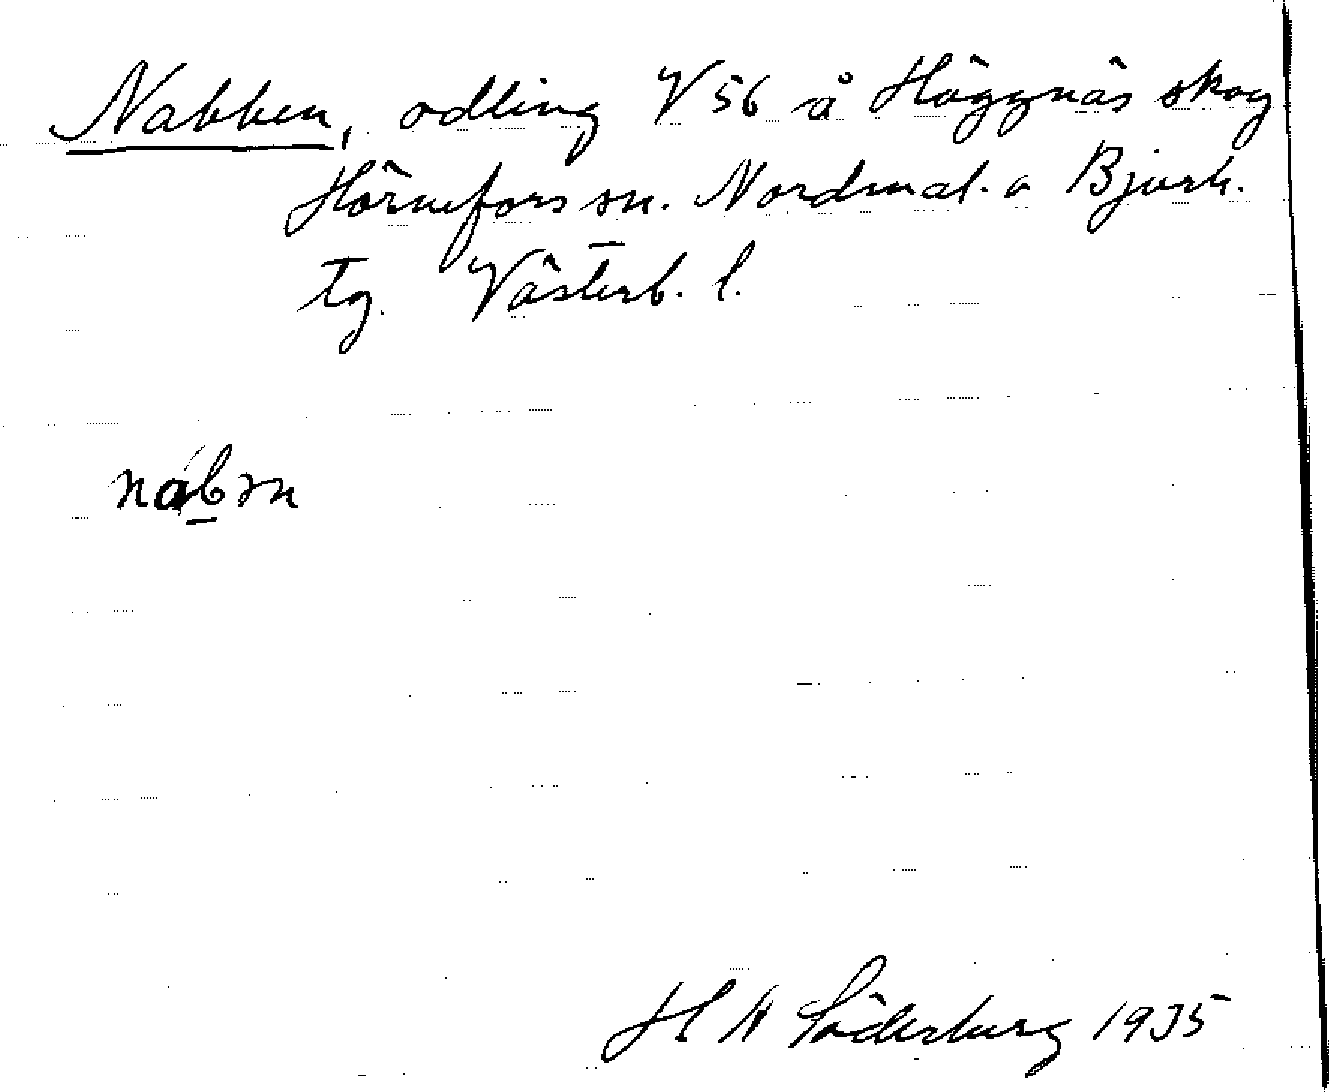 Nabben, odling V 56 å Häggnäs skog
Hörnefors sn. Nordmal. o Bjurh.
tg. Västerb. l.
nábm
H A Söderburg 1935